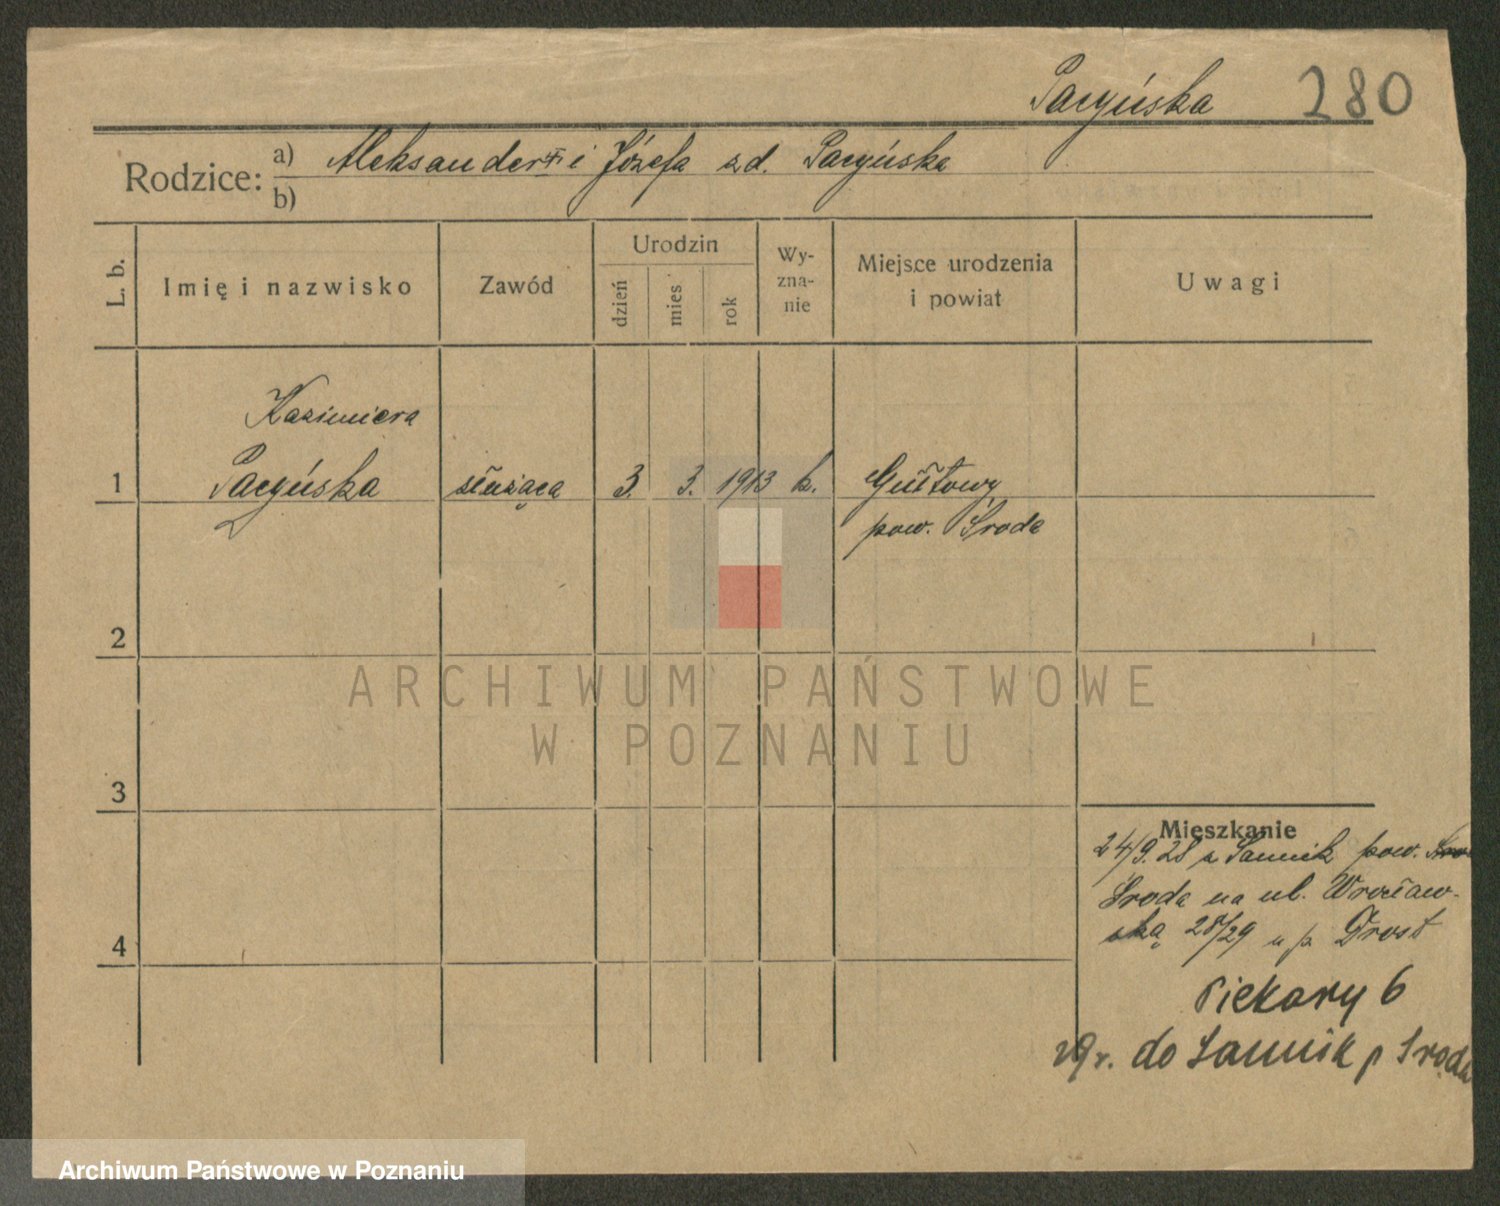 Pacyńska 280
Rodzice: a) Aleksander i Józefa zd. Pacyńska
b)
L. b. Imię i nazwisko Zawód Urodzin dzień mies rok Wyznanie Miejsce urodzenia i powiat Uwagi
Kazimiera
1 Pacyńska służąca 3. 3. 1913 k. Gułtowy
pow. Środa
2
ARCHIWUM PAŃSTWOWE
W POZNANIU
3
Mieszkanie
24/9.28 z Sannik pow.
Środa na ul. Wrocław-
4 ską 28/29 u p. Drost
Piekary 6
29 r. do Sannik p Środa
Archiwum Państwowe w Poznaniu